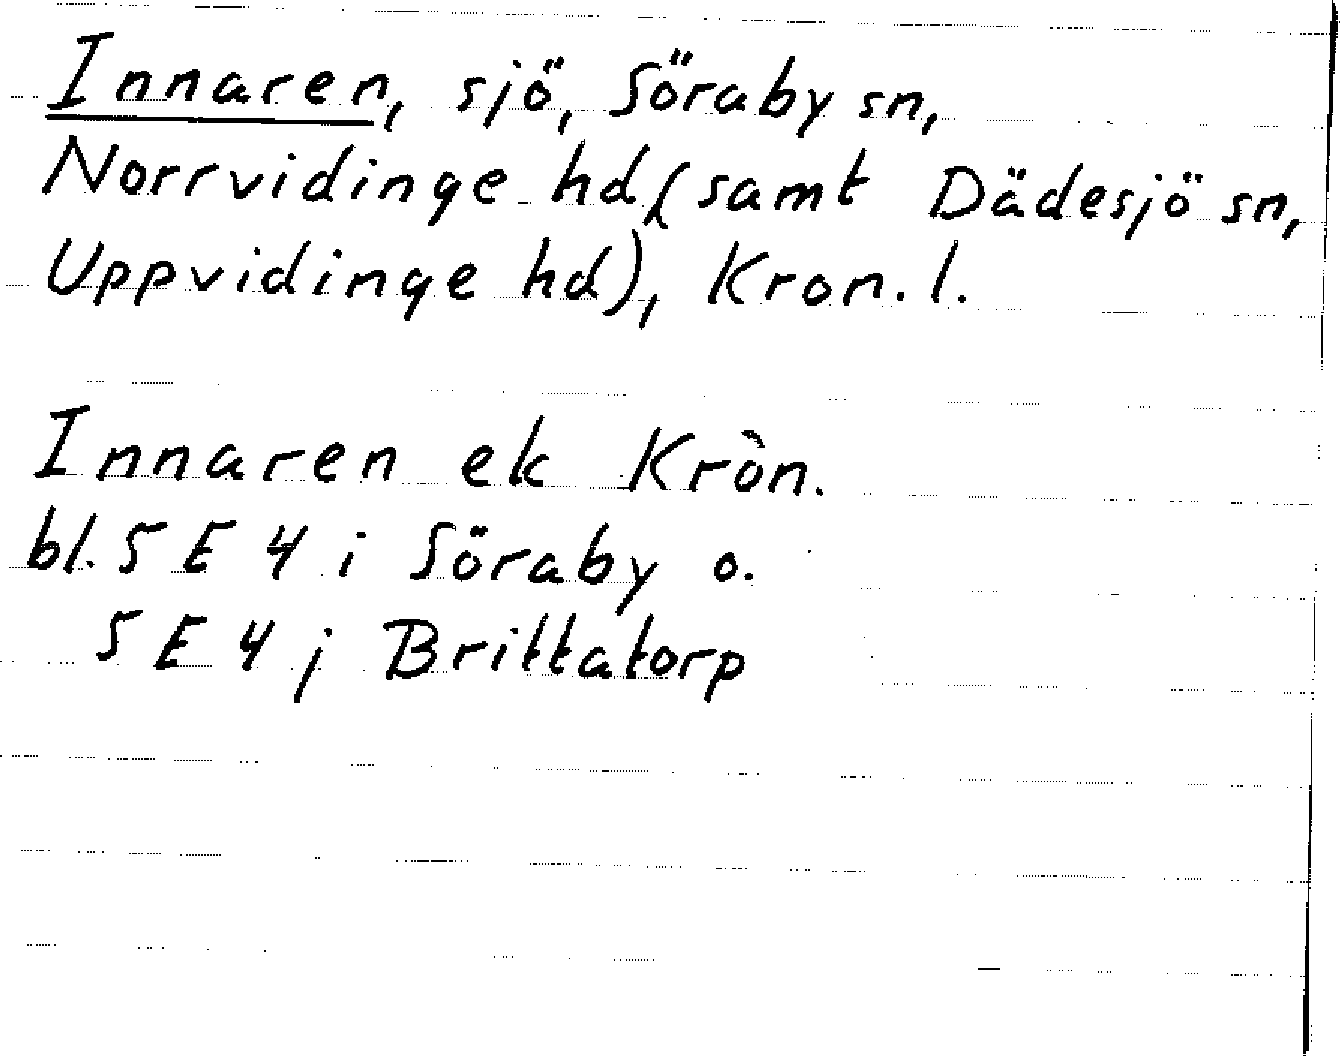 Innaren, sjö, Söraby sn,
Norrvidinge hd (samt Dädesjö sn,
Uppvidinge hd), Kron. l.
Innaren ek Kron.
bl. 5 E 4 i Söraby o.
5 E 4 j Brittatorp